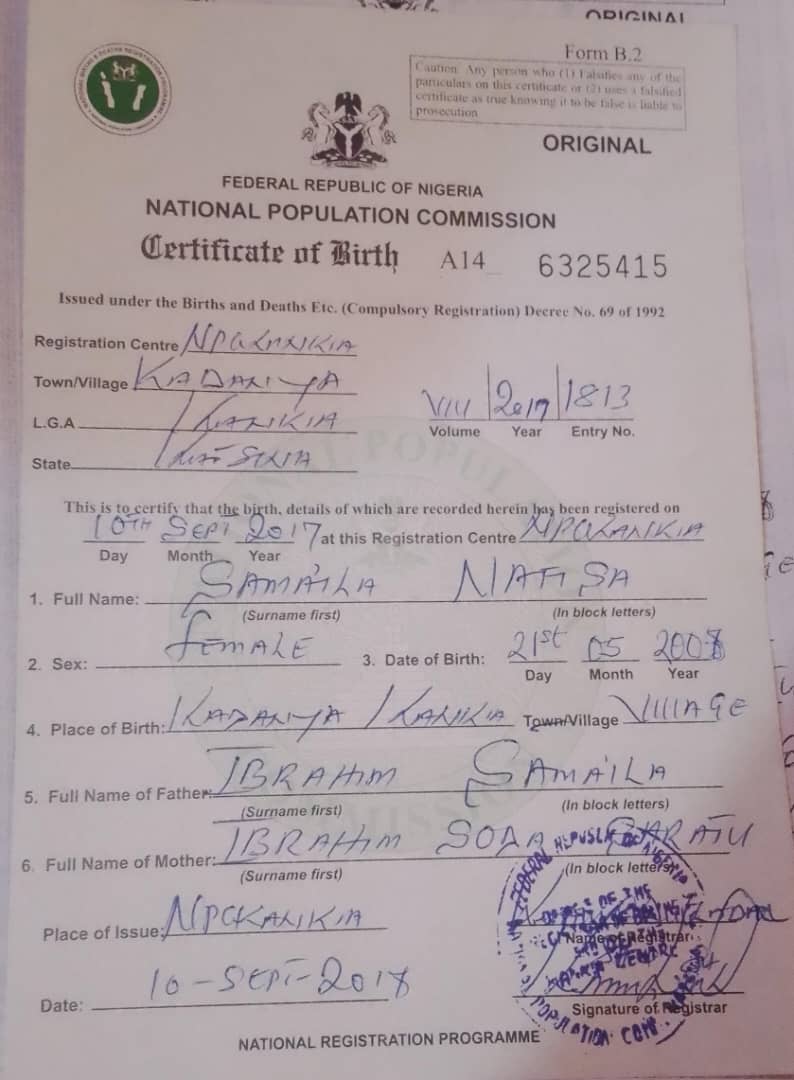 ORIGINAL
Form B.2
Caution: Any person who (1) Falsifies any of the
particulars on this certificate or (2) uses a falsified
certificate as true knowing it to be false is liable to
prosecution
ORIGINAL
FEDERAL REPUBLIC OF NIGERIA
NATIONAL POPULATION COMMISSION
Certificate of Birth A14 6325415
Issued under the Births and Deaths Etc. (Compulsory Registration) Decree No. 69 of 1992
Registration Centre NPCKANKIA
Town/Village KADANIYA
L.G.A KANKIA
State KATSINA
VIII 2017 1813
Volume Year Entry No.
This is to certify that the birth, details of which are recorded herein has been registered on
10TH SEPT 2017 at this Registration Centre NPCKANKIA
Day Month Year
1. Full Name: SAMA'ILA NAFISA
(Surname first) (In block letters)
2. Sex: FEMALE 3. Date of Birth: 21st 05 2008
Day Month Year
4. Place of Birth: KADANIYA KANKIA Town/Village VILLAGE
5. Full Name of Father: IBRAHIM SAMA'ILA
(Surname first) (In block letters)
6. Full Name of Mother: IBRAHIM SODA
(Surname first) (In block letters)
Place of Issue: NPCKANKIA
Name of Registrar
Date: 10-SEPT-2017
Signature of Registrar
NATIONAL REGISTRATION PROGRAMME